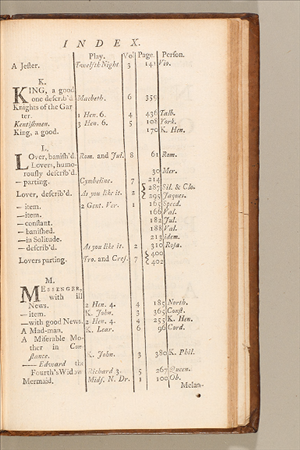 INDEX.
Play. Vol Page. Person.
A Jester. Twelfth Night 3 141 Vio.
K.
KING, a good
one describ'd Macbeth. 6 359
Knights of the Gar
ter. 1 Hen. 6. 4 436 Talb.
Kentishmen. 3 Hen. 6. 5 108 York.
King, a good. 170 K. Hen.
L.
Lover, banish'd. Rom. and Jul. 8 61 Rom.
Lovers, humo-
rously describ'd 30 Mer.
— parting. Cymbeline. 7 214
Lover, describ'd. As you like it. 2 287 Sil. & Clo.
295 Jaques.
— item. 2 Gent. Ver. 1 165 Speed.
— item. 166 Val.
— constant. 182 Jul.
— banished. 188 Val.
— in Solitude. 213 Idem.
— describ'd. As you like it. 2 310 Rosa.
Lovers parting. Tro. and Cres. 7 400
402
M.
MESSENGER,
with ill
News. 2 Hen. 4. 4 185 North.
— item. K. John. 3 369 Const.
— with good News. 2 Hen. 4. 4 255 K. Hen.
A Mad-man. K. Lear. 6 96 Cord.
A Miserable Mo-
ther in Con
stance. K. John. 3 380 K. Phil.
— Edward the
Fourth's Widow Richard 3. 5 267 Queen.
Mermaid. Mids. N. Dr. 1 100 Ob.
Melan-